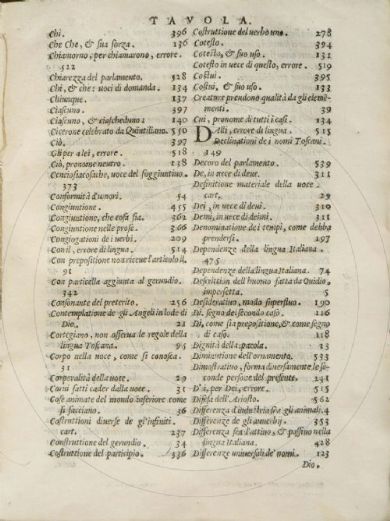 TAVOLA.
Chi. 396
Che Che, & sua forza. 136
Chiamorno, per chiamarono, errore.
522
Chiarezza del parlamento. 528
Chi, & che: uoci di domanda. 134
Chiunque. 137
Ciascuno. 397
Ciascuno, & ciascheduno: 140
Cicerone celebrato da Quintiliano. 550
Ciò. 397
Gli per a lei, errore. 518
Ciò, pronome neutro. 138
373
Conformità d'uopri. 54
Congiuntione. 455
Congiuntione, che cosa sia. 362
Congiuntione nelle prose. 366
Congiogationi de i uerbi. 209
Con il, errore di lingua. 514
Con prepositione uo a
91
Con particella aggiunta al gerundio.
342
Consonante del preterito. 256
Contemplatione de gli Angeli in lode di
Dio. 21
Cortegiano, non osserua le regole della
lingua Toscana. 95
Corpo nella uoce, come si conosca.
31
Corporalità della uoce. 29
Corni fatti cader dalla uoce. 31
Cose animate del mondo inferiore come
si facciano. 36
Costruttioni diuerse de gl'infiniti.
cart. 237
Construttione del gerundio. 34
Costruttione del participio. 536
Costruttione del uerbo uno. 278
Cotesto. 394
Cotesto, & suo uso. 131
Cotesto in uece di questo, errore. 519
Costui. 395
Costui, & suo uso. 133
Creature prendono qualità da gli ele-
menti. 39
Cui, pronome di tutti i casi. 134
DAlli, errore di lingua. 515
Declinationi de i nomi Toscani.
149
Decoro del parlamento. 539
De, in uece di deue. 311
Definitione materiale della uoce.
cart. 29
Dei, in uece di deui. 310
Demi, in uece di deimi. 311
Denominatione de i tempi, come debba
prendersi. 197
Dependenze della lingua Italiana.
475
Dependenze della lingua Italiana. 74
Descrittion dell'huomo fatta da Ouidio
imperfetta. 5
Desideratiuo, modo superfluo. 190
Di, segno del secondo caso. 116
Di, come sia prepositione, & come segno
di caso. 118
Dignità della parola. 13
Diminutione dell'ornamento. 533
Dimostratiuo, forma diuersa nelle se-
conde persone del presente. 241
D'i, per Dei, errore. 515
Difesa dell'Ariosto. 562
Differenza d'industria fra gli animali. 4
Differenze de gli auuerbij. 353
Differenza fra l'attiuo, & passiuo nella
lingua Italiana. 428
Differenze uniuersali de' nomi. 123
Dio.